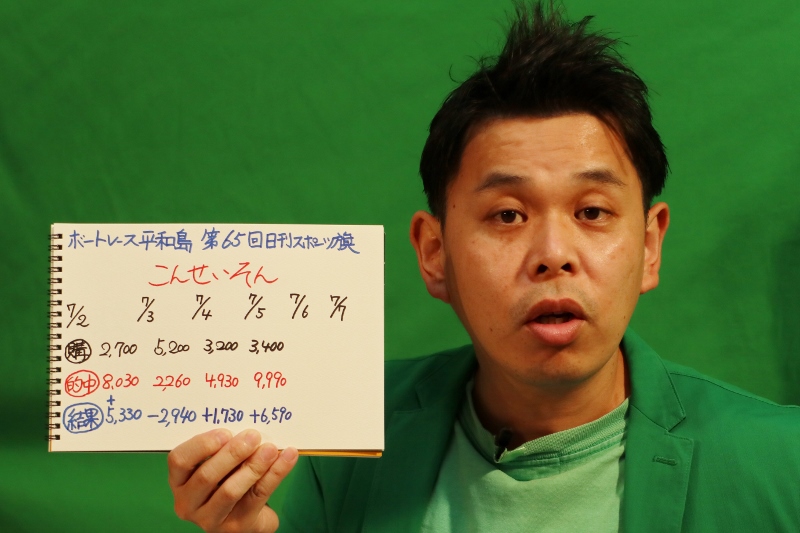 ボートレース平和島 第65回日刊スポーツ旗
こんせいそん
7/2 7/3 7/4 7/5 7/6 7/7
購 2,700 5,200 3,200 3,400
的中 8,030 2,260 4,930 9,990
結果 +5,330 -2,940 +1,730 +6,590